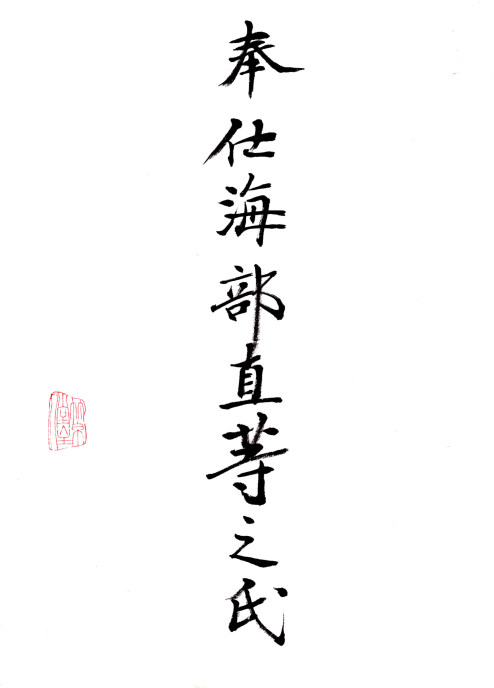 奉仕海部直等之氏